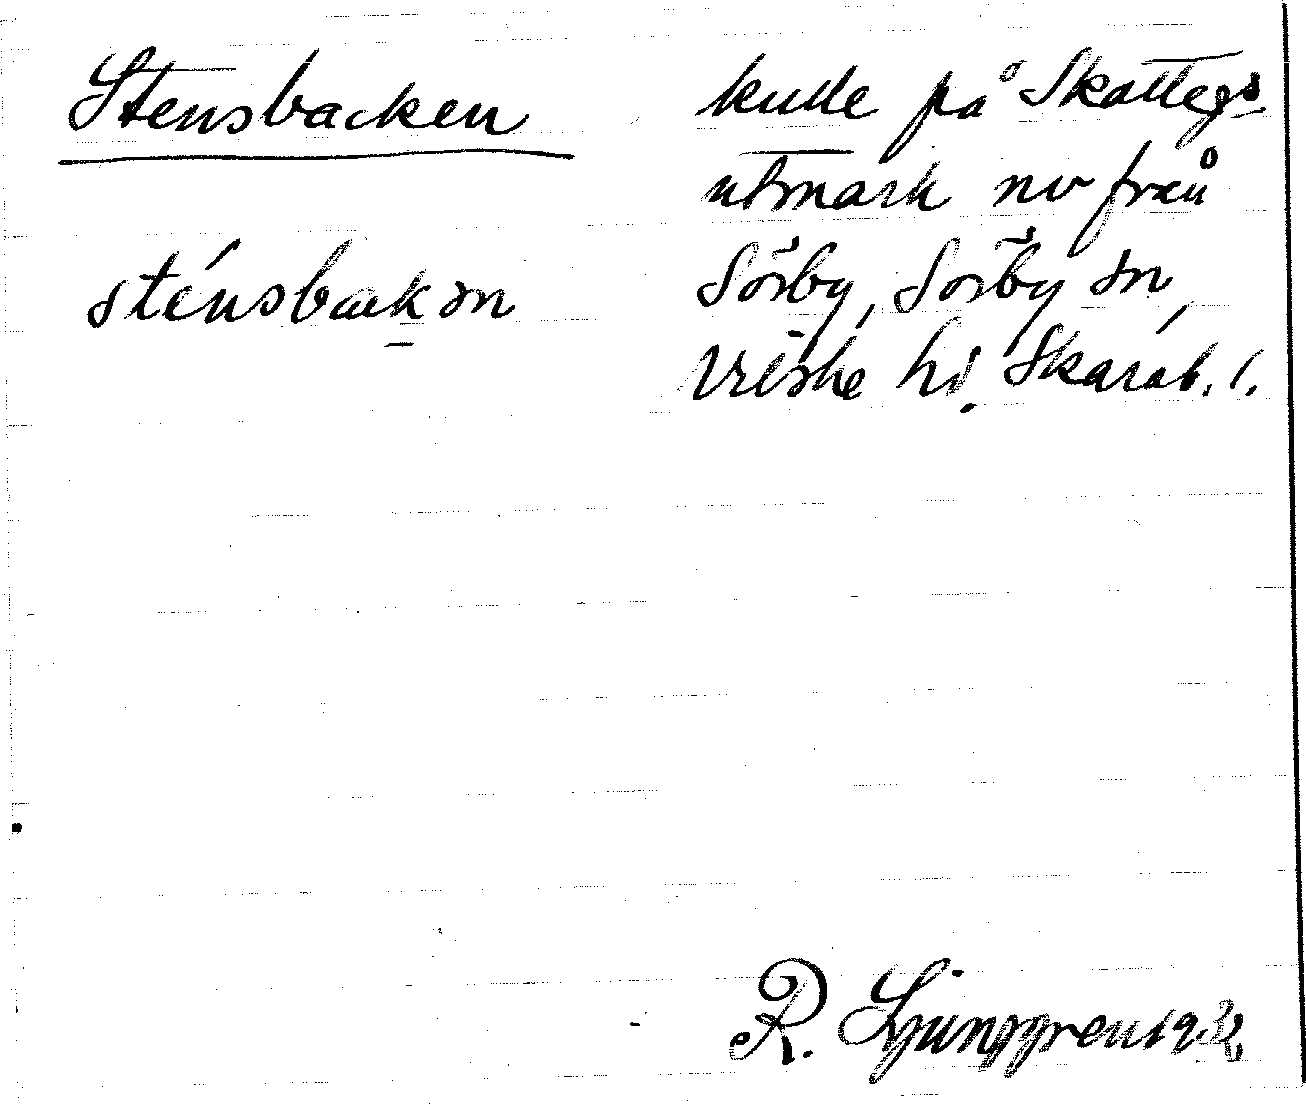 Stensbacken
sténsbackən
kulle på Skattegs
utmark nv från
Sörby, Sörby sn,
Vilske hd. Skarab. l.
R. Ljunggren 1932